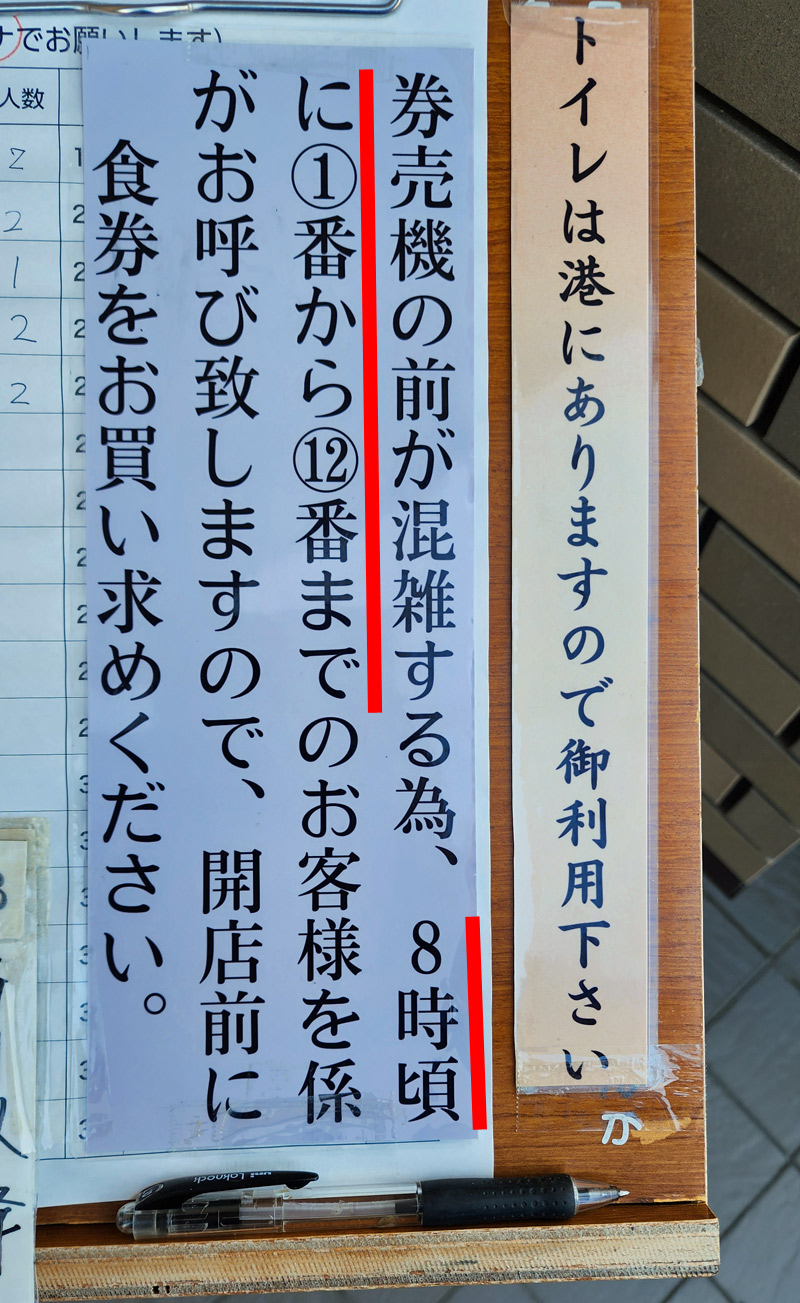 トイレは港にありますので御利用下さい
か
券売機の前が混雑する為、8時頃
に①番から⑫番までのお客様を係
がお呼び致しますので、開店前に
食券をお買い求めください。
でお願いします)
人数
2
2
1
2
2
uni Laknock